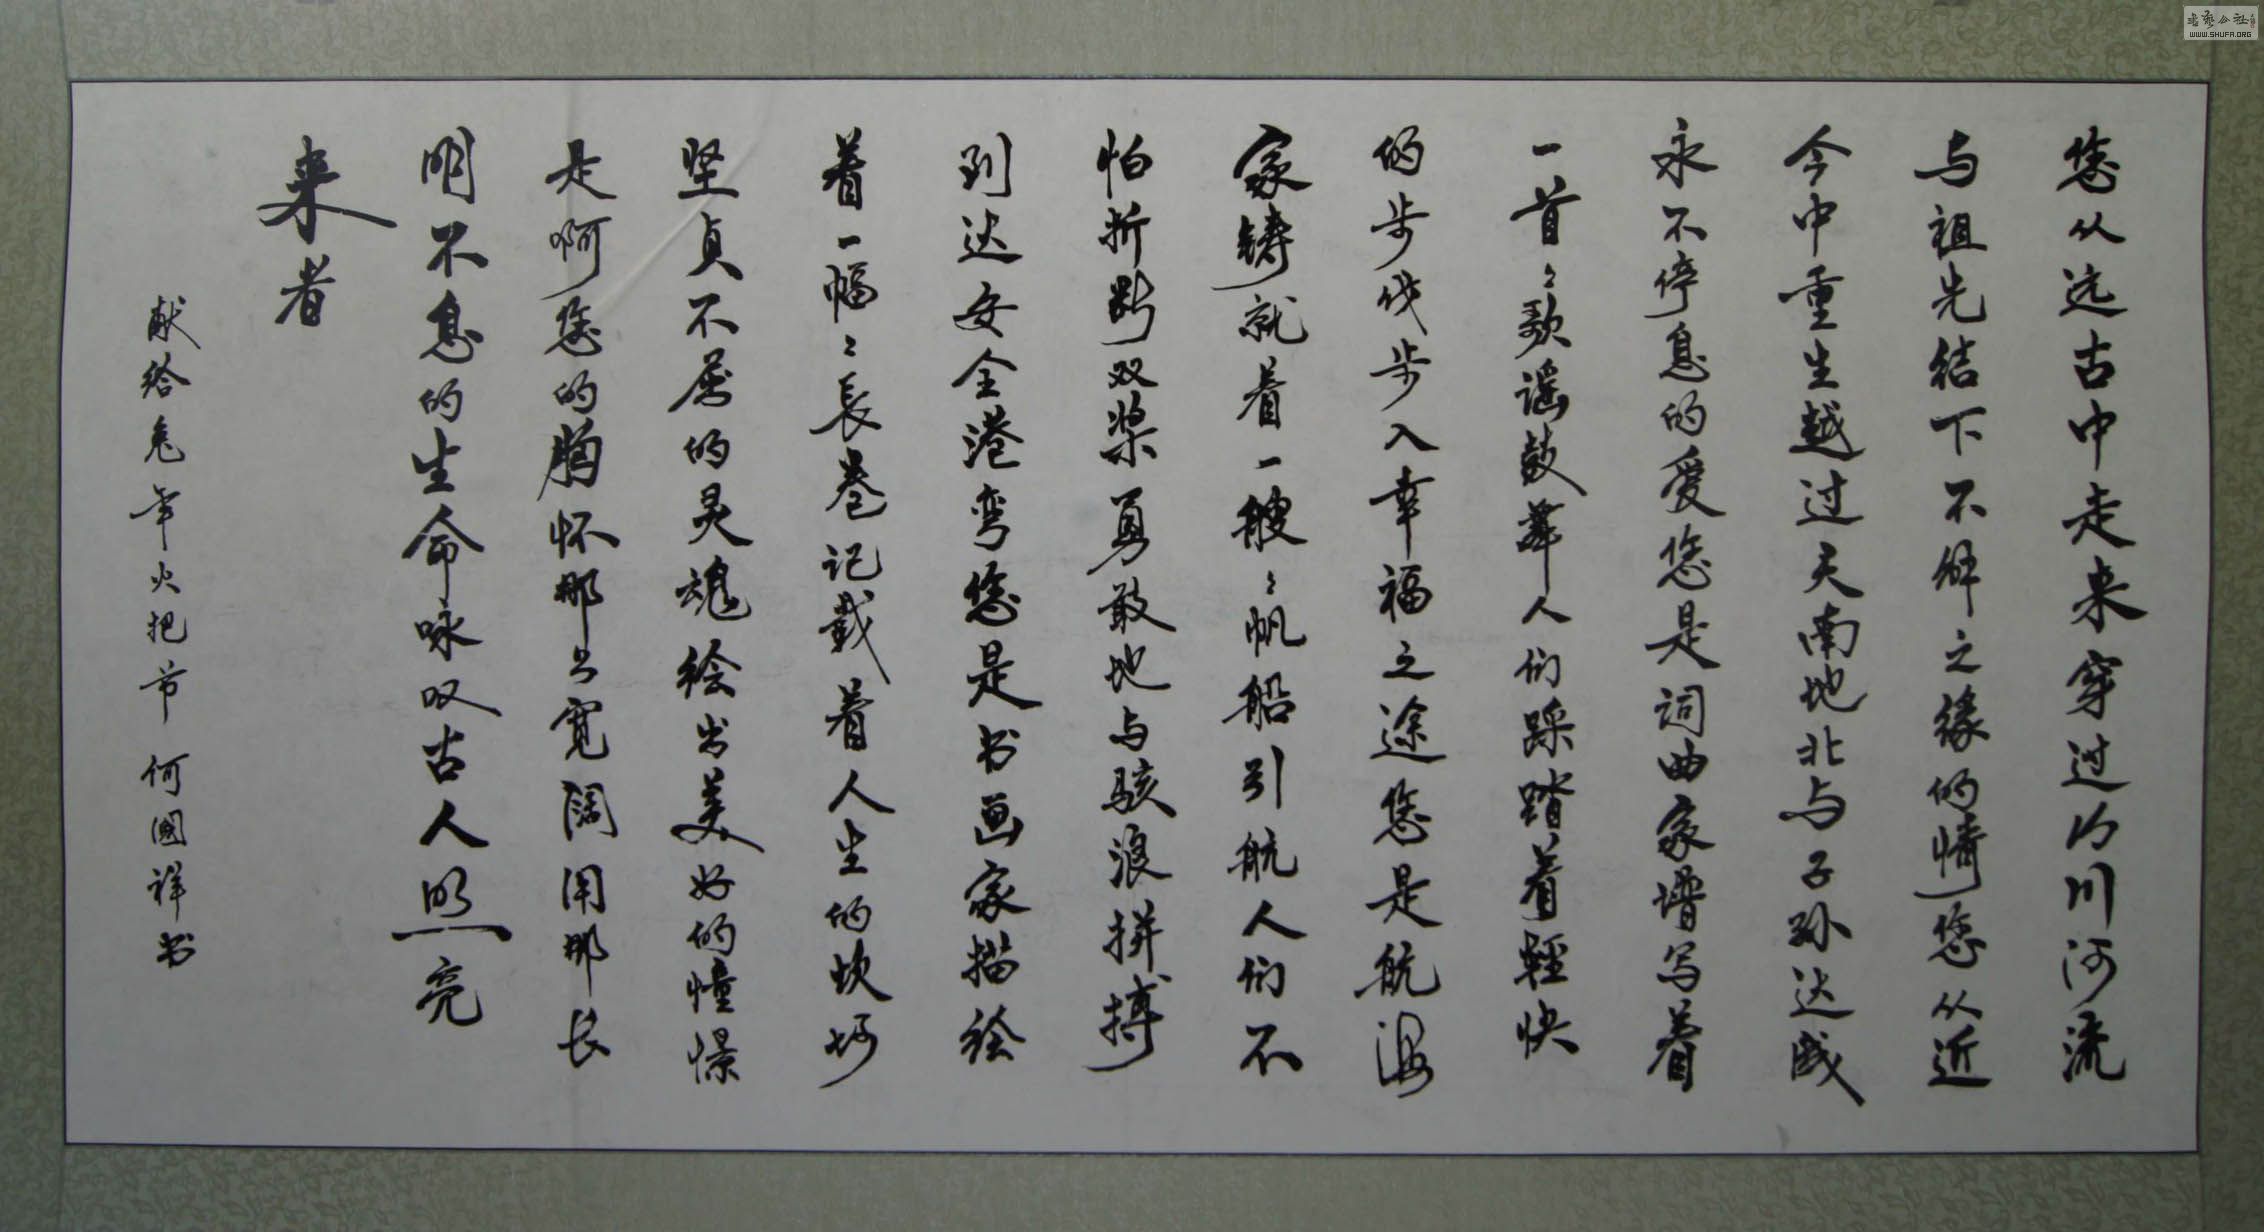 您从远古中走来穿过山川河流
与祖先结下不解之缘的情您从近
今中重生越过天南地北与子孙达成
永不停息的爱您是词曲家谱写着
一首々歌谣鼓舞人们踩踏着輕快
的步伐步入幸福之途您是航海
家铸就着一艘々帆船引航人们不
怕折断双桨勇敢地与骇浪拼搏
到达安全港弯您是书画家描绘
着一幅々長卷记载着人生的坎坷
坚贞不屈的灵魂绘出美好的憧憬
是啊您的胸怀那么宽阔用那长
明不息的生命咏叹古人照亮
来者
献给兔年火把节 何國祥书
書藝公社
WWW.SHUFA.ORG